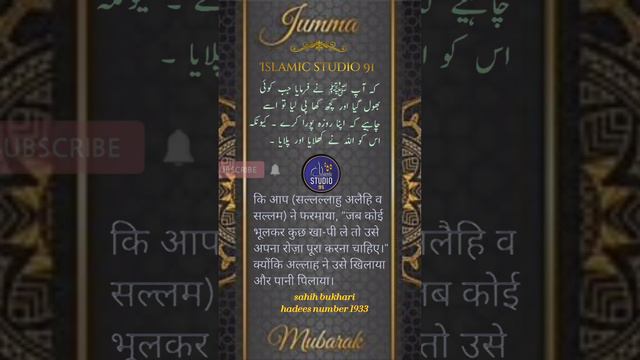 Jumma
ISLAMIC STUDIO 91
کہ آپ ﷺ نے فرمایا جب کوئی
بھول گیا اور کچھ کھا پی لیا تو اسے
چاہیے کہ اپنا روزہ پورا کرے ۔ کیونکہ
اس کو اللہ نے کھلایا اور پلایا ۔
SUBSCRIBE
STUDIO
91
कि आप (सल्लल्लाहु अलैहि व
सल्लम) ने फरमाया, "जब कोई
भूलकर कुछ खा-पी ले तो उसे
अपना रोज़ा पूरा करना चाहिए।"
क्योंकि अल्लाह ने उसे खिलाया
और पानी पिलाया।
sahih bukhari
hadees number 1933
Mubarak